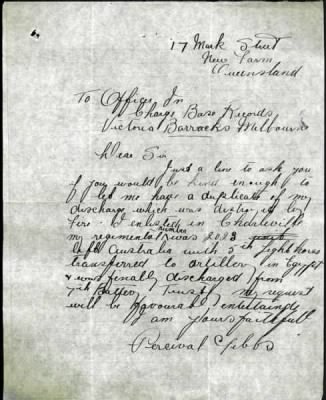 17 Mark Street
New Farm
Queensland
To Officer In
Charge Base Records
Victoria Barracks Melbourne
Dear Sir
Just a line to ask you
if you would be kind enough to
let me have a duplicate of my
discharge which was destroyed by
fire. I enlisted in Charleville
my regimental number was 2023
left Australia with 5th Light Horse
transferred to artillery in Egypt
& was finally discharged from
7th Battery Trusting my request
will be favourably entertained
I am yours faithfull
Percival Gibbs